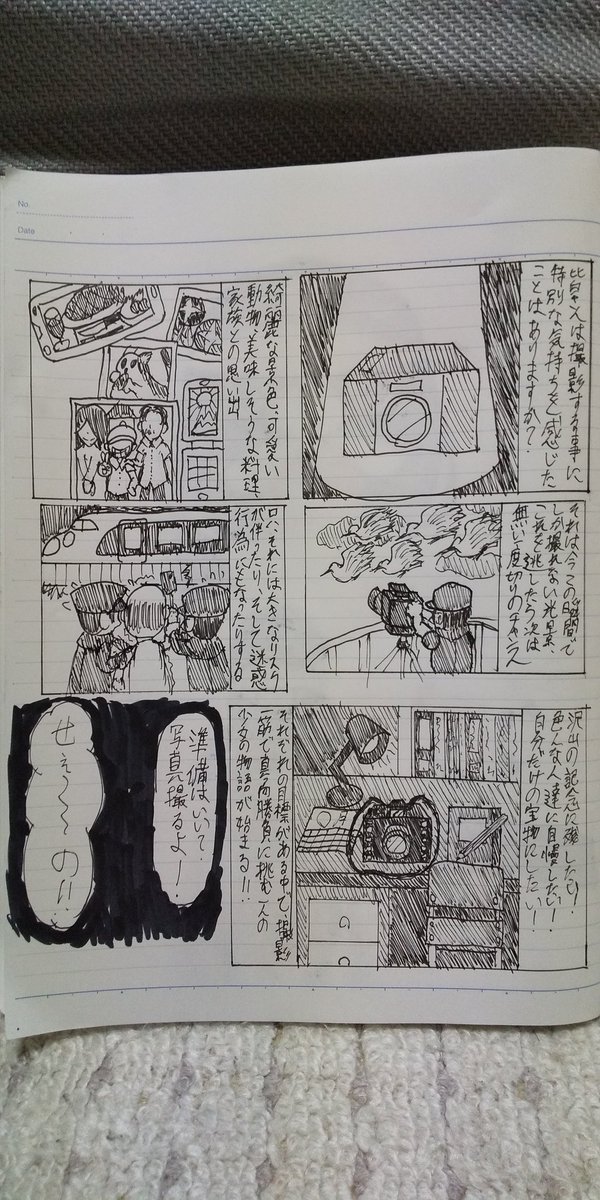 No.
Date
皆さんは撮影する事に
特別な気持ちを感じた
ことはありますか?
綺麗な景色、可愛い
動物、美味しそうな料理、
家族との思い出
それは今この瞬間で
しか撮れない光景、
これを逃したら次は
無い一度切りのチャンス
只、それには大きなリスク
が伴ったり、そして迷惑
行為にもなったりする
沢山の記念に残したい!
色んな人達に自慢したい!
自分だけの宝物にしたい!
それぞれの目標がある中で、撮影
一筋で真向勝負に挑む一人の
少女の物語が始まる!!
準備はいい?
写真撮るよー!
せぇ〜〜の!!